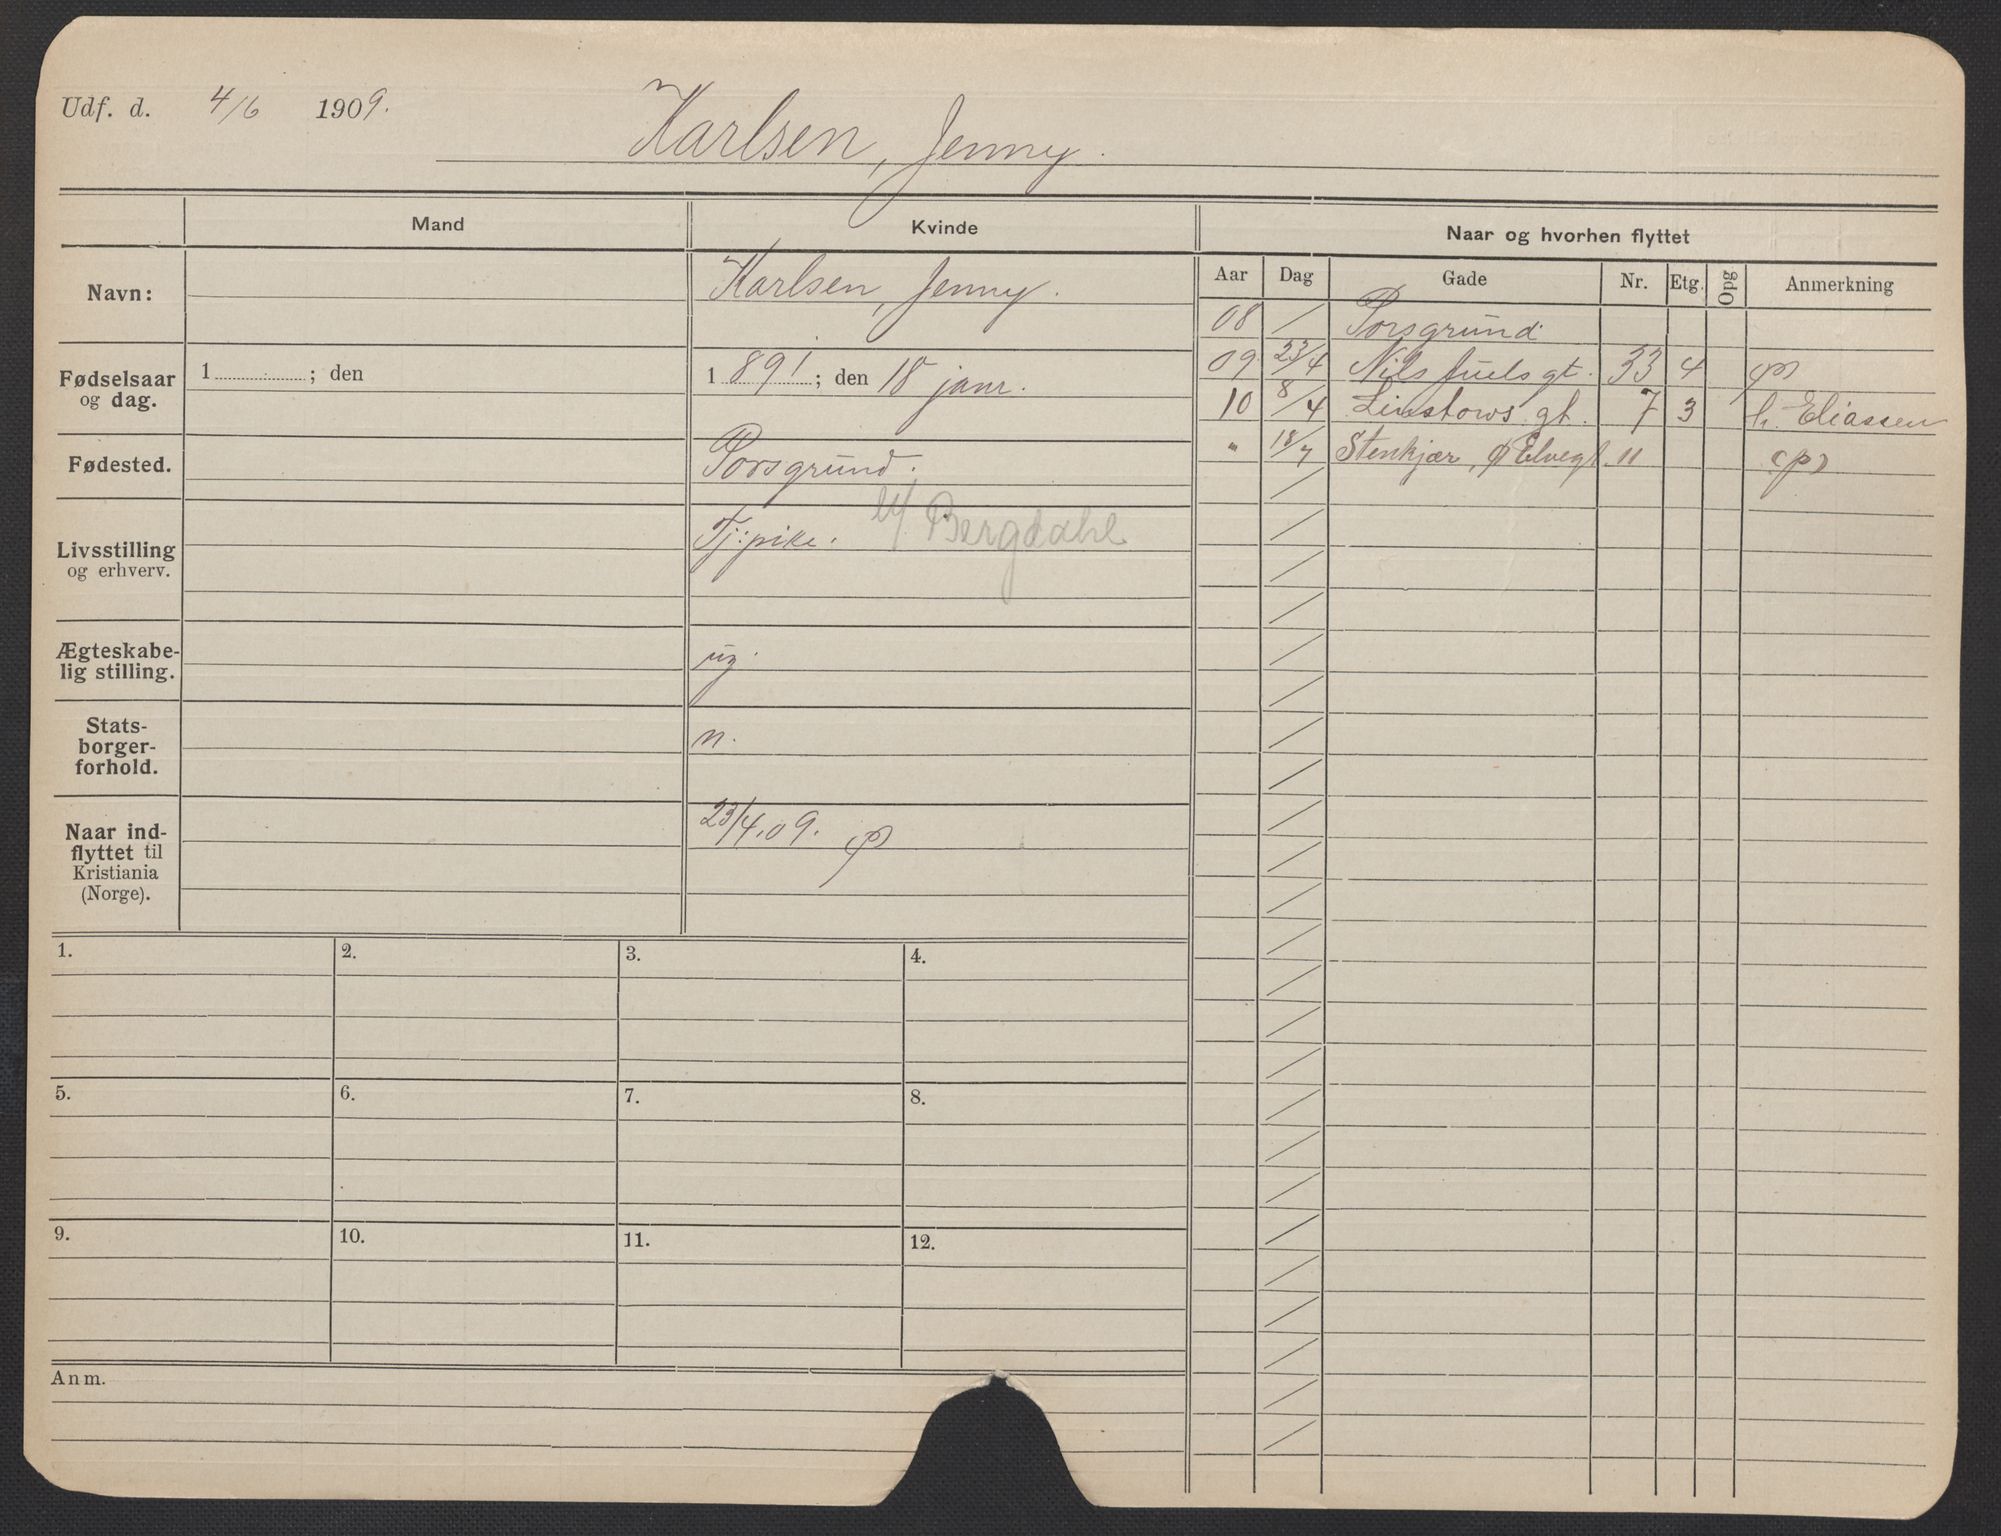 Udf. d. 4/6 1909.
Karlsen, Jenny.
Mand
Kvinde
Naar og hvorhen flyttet
Navn:
Karlsen, Jenny.
Fødselsaar
og dag.
1 ; den
1 891 ; den 18 janr.
Fødested.
Porsgrund.
Livsstilling
og erhverv.
Tj: pike. Bergdahl
Ægteskabe-
lig stilling.
ug.
Stats-
borger-
forhold.
n.
Naar ind-
flyttet til
Kristiania
(Norge).
23/4.09.
Aar Dag Gade Nr. Etg. Opg Anmerkning
08 / Porsgrund.
09 23/4 Nils Juels gt. 33 4
10 8/4 Linstows gt. 7 3 h. Eliassen
" 18/7 Stenkjær, Elvegt. 11
1. 2. 3. 4.
5. 6. 7. 8.
9. 10. 11. 12.
Anm.